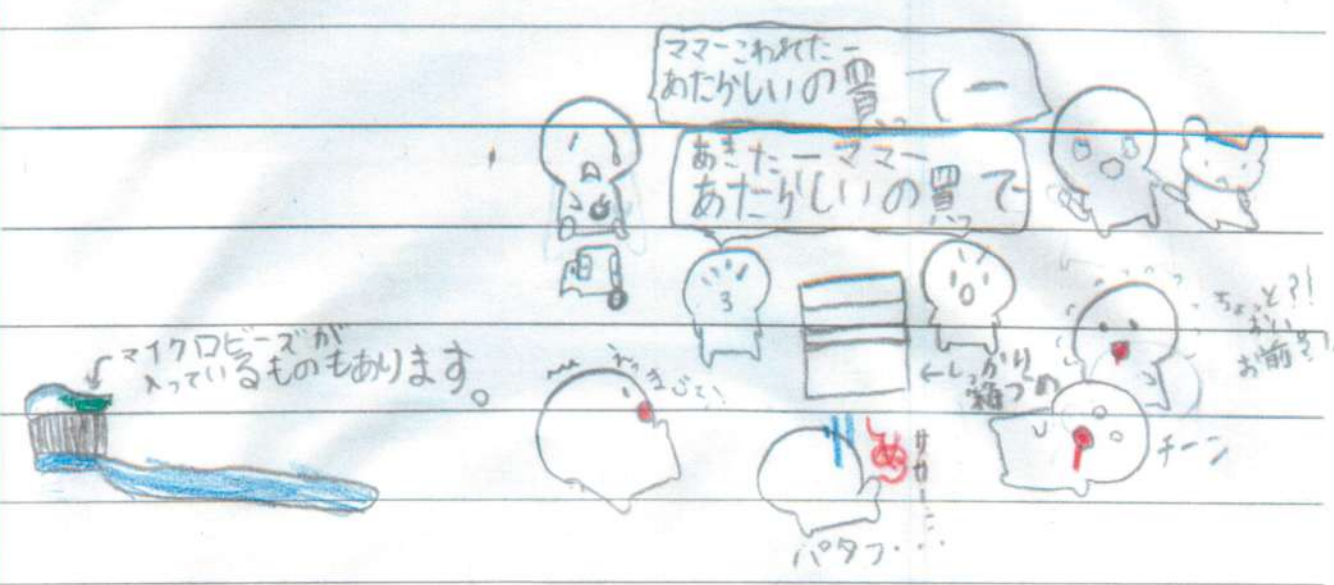 ママーこわれたー
あたらしいの買ってー
あきたーママー
あたらしいの買って
マイクロビーズが
入っているものもあります。
←しっかり
箱づめ
ちょっと?!
おい
お前?!
チーン
パタッ・・・